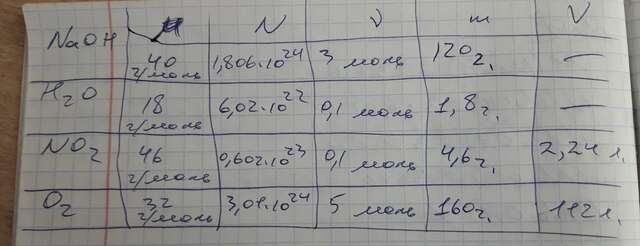 M N ν m V
NaOH 40 г/моль 1,806·10²⁴ 3 моль 120г. —
H₂O 18 г/моль 6,02·10²² 0,1 моль 1,8г. —
NO₂ 46 г/моль 0,602·10²³ 0,1 моль 4,6г. 2,24 л.
O₂ 32 г/моль 3,01·10²⁴ 5 моль 160г. 112 л.